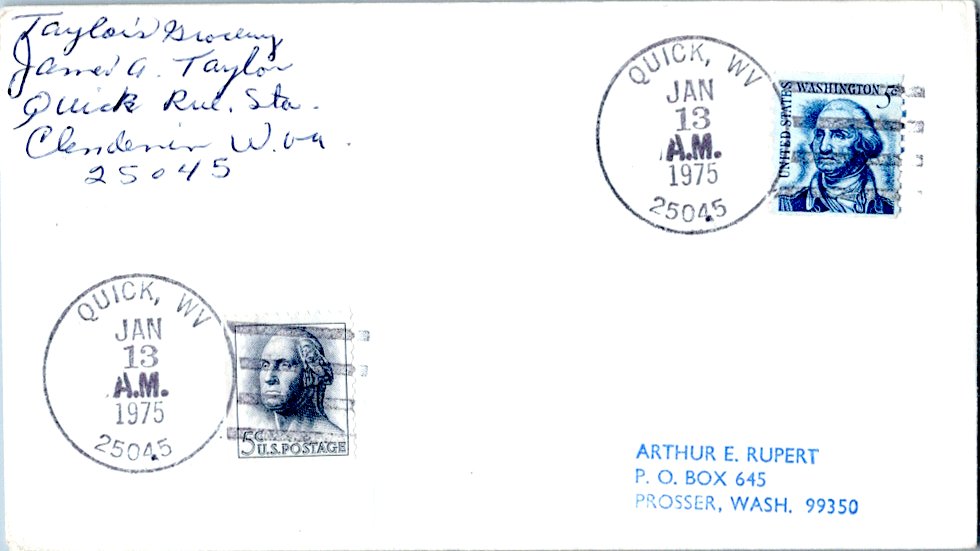 Taylor's Grocery
James A. Taylor
Quick Rul. Sta.
Clendenin W. Va.
25045
QUICK, WV
JAN
13
A.M.
1975
25045
UNITED STATES
WASHINGTON 5¢
QUICK, WV
JAN
13
A.M.
1975
25045
5¢
U.S. POSTAGE
ARTHUR E. RUPERT
P. O. BOX 645
PROSSER, WASH. 99350